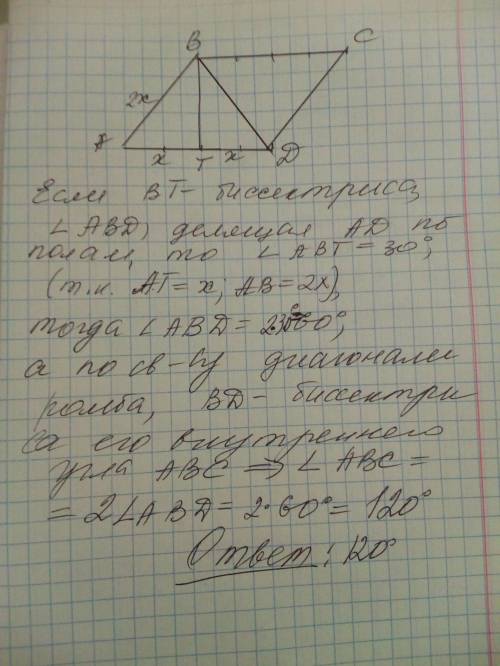 B C
2x
A x T x D
Если BT- биссектриса
∠ABD, делящая AD по
полам, то ∠ABT = 30°,
(т.к. AT = x; AB = 2x),
тогда ∠ABD = 2·30=60°,
а по св-ву диагонали
ромба, BD - биссектри
са его внутреннего
угла ABC => ∠ABC =
= 2∠ABD = 2·60° = 120°
Ответ: 120°